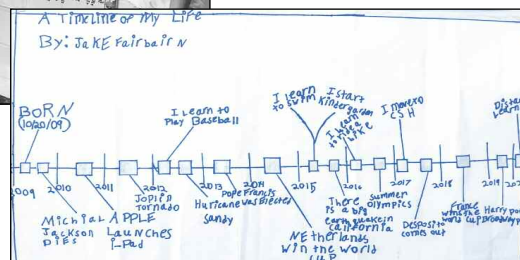 A Timeline of My Life
By: Jake Fairbairn
BORN
(10/20/09)
I Learn to
Play Baseball
I Learn
to swim
I start
Kindergarten
I Learn
to ride a
BIKE
I move to
CSH
Distan
Learn
2009
2010
2011
2012
2013
2014
2015
2016
2017
2018
2019
Michial
Jackson
DIES
APPLE
Launches
i-Pad
Joplin
tornado
Hurricane
Sandy
Pope Francis
was Elected
NEtherlands
win the world
CUP
There
is a big
earthquake in
california
summer
olympics
Desposito
comes out
France
wins the
world cup
Harry po
Broadway